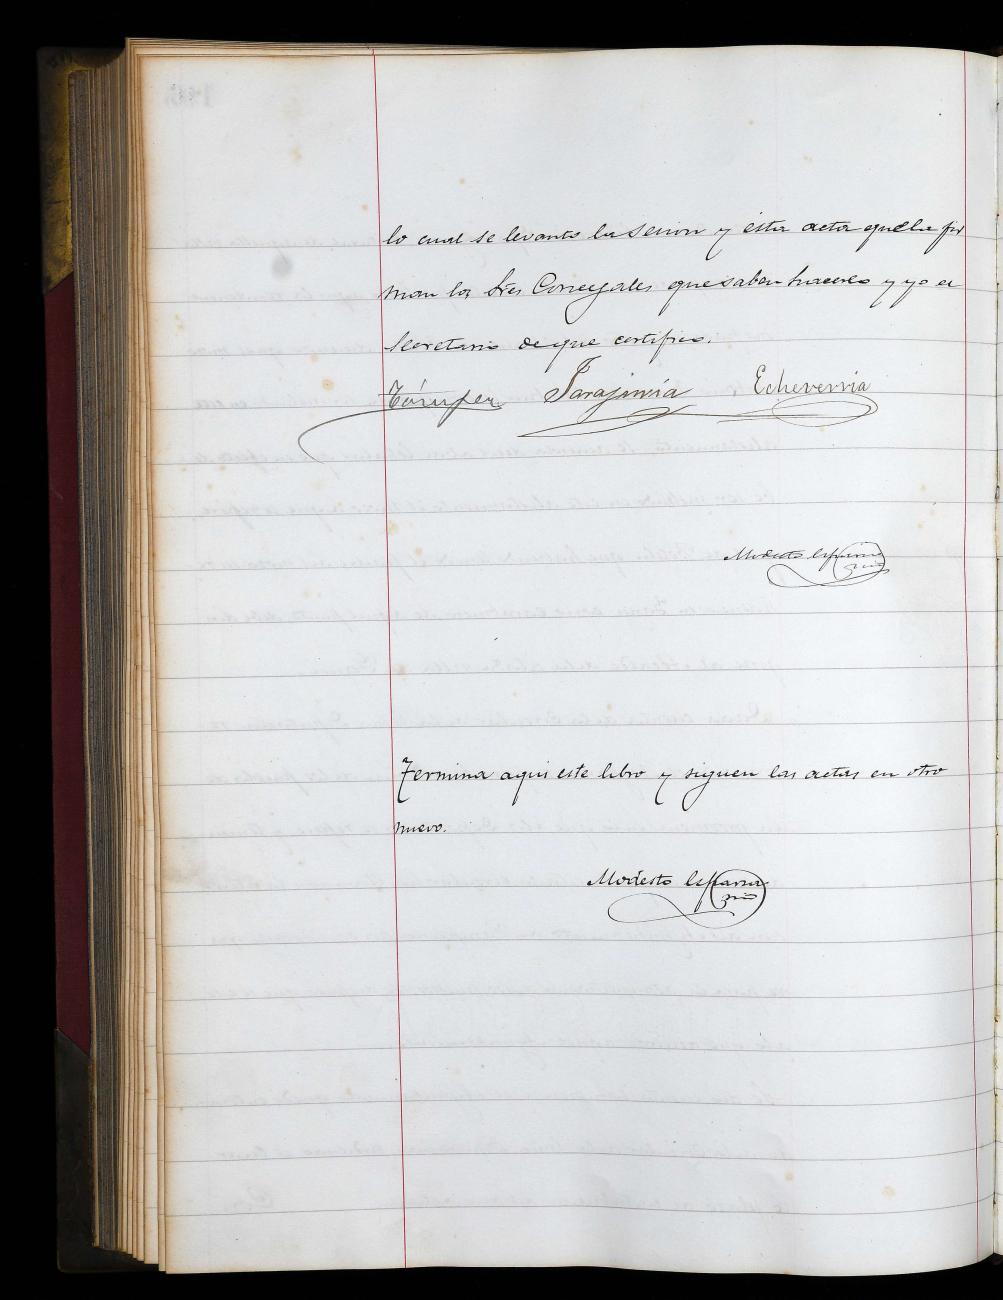 lo cual se levanto la sesion y ésta acta que la fir
man los Sres Concejales que saben hacerlo y yo el
Secretario de que certifico.
Sarajinia Echeverria
Modesto Esparza
Termina aqui este libro y siguen las actas en otro
nuevo.
Modesto Esparza
srio